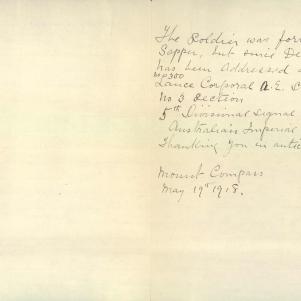 The Soldier was for
Sapper, but since De
has been addressed
No 300
Lance Corporal A.E.
No 3 Section
5th Divisional Signal
Australian Imperial
Thanking you in antic
Mount Compass
May 19th 1918.